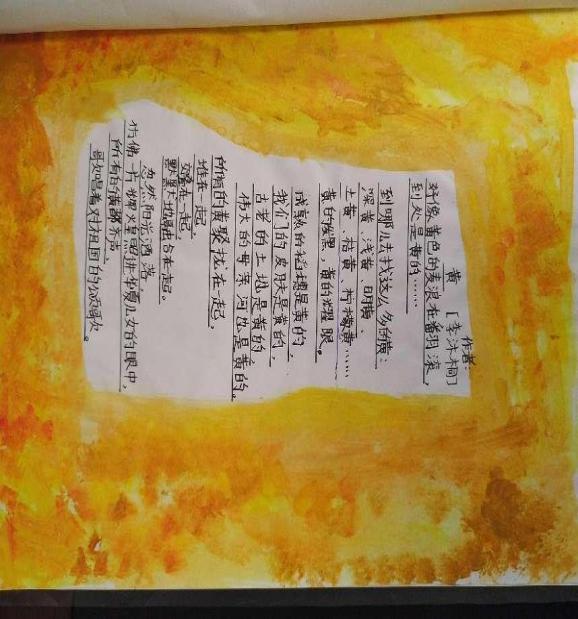 黄
作者:
[李沐桐]
好像黄色的麦浪在翻滚,
到处是黄的……
到哪儿去找这么多的黄:
深黄、浅黄、明黄、
土黄、桔黄、柠檬黄……
黄的发黑,黄的耀眼。
成熟的稻穗是黄的,
我们的皮肤是黄的,
古老的土地是黄的,
伟大的母亲河也是黄的。
所有的黄聚拢在一起,
堆在一起,
在一起,
默默地融合在一起。
忽然阳光洒落,
仿佛一片烟火星照进华夏儿女的眼中,
所有的黄都齐声,
歌唱着对祖国的颂歌。